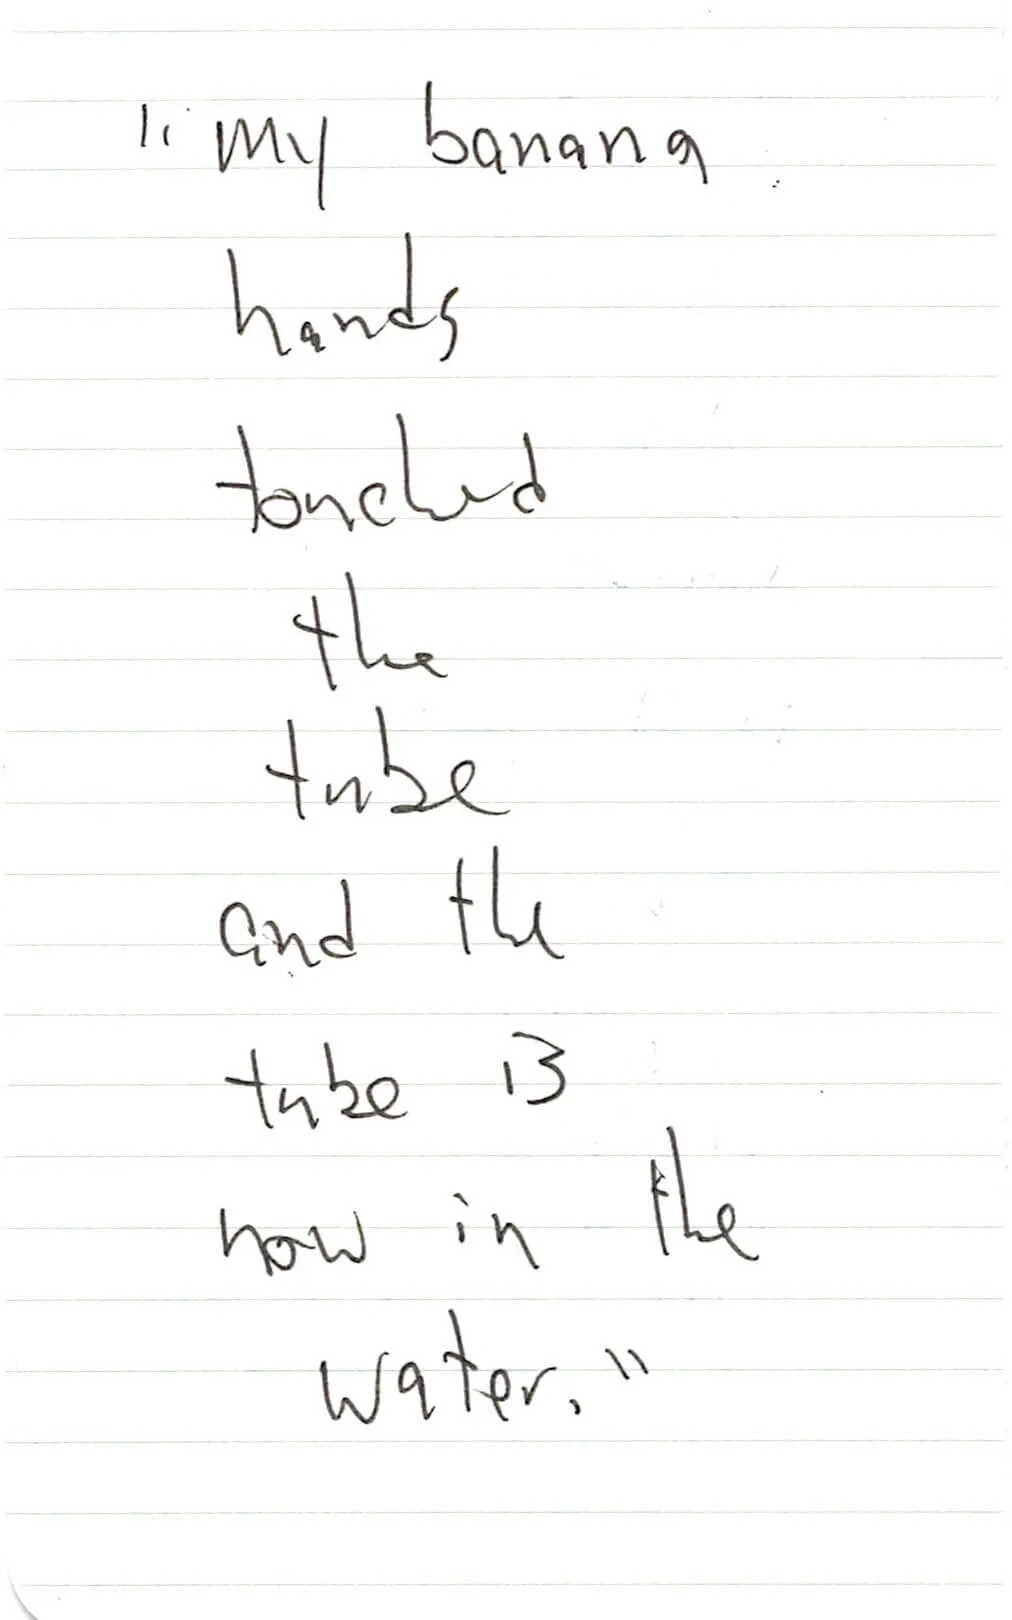 "My banana
hands
touched
the
tube
and the
tube is
now in the
water."